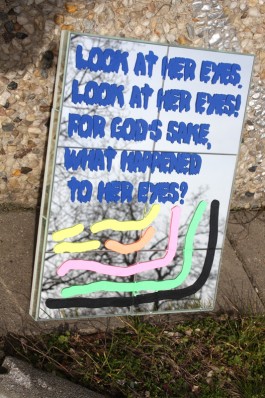 LOOK AT HER EYES.
LOOK AT HER EYES!
FOR GOD'S SAKE,
WHAT HAPPENED
TO HER EYES?